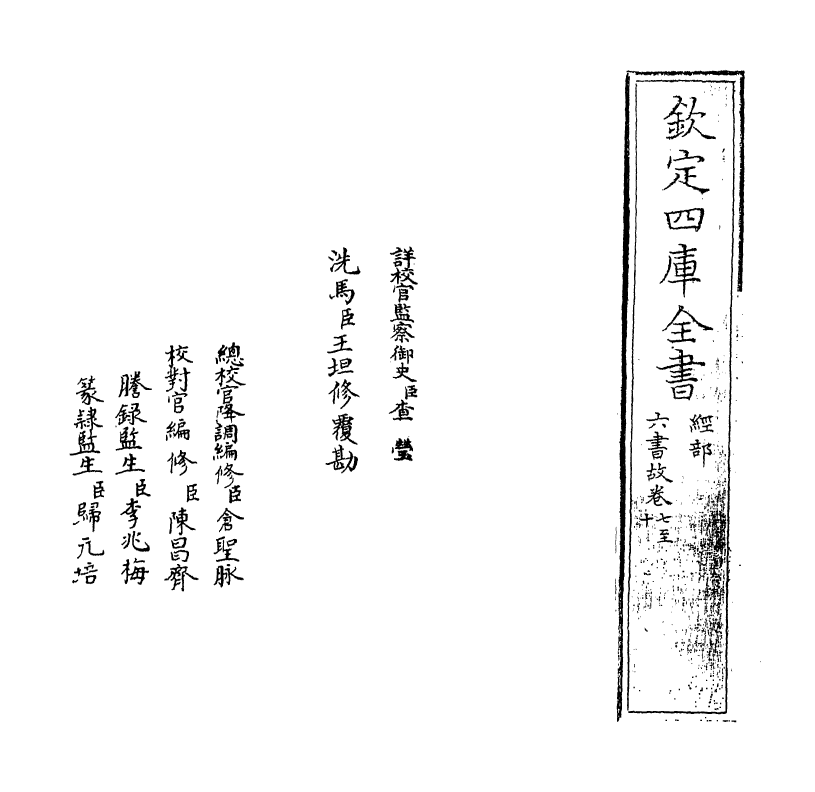 欽定四庫全書
經部
六書故卷七至十
詳校官監察御史臣查瑩
洗馬臣王坦修覆勘
總校官降調編修臣倉聖脉
校對官編修臣陳昌齊
謄録監生臣李兆梅
篆隸監生臣歸元培